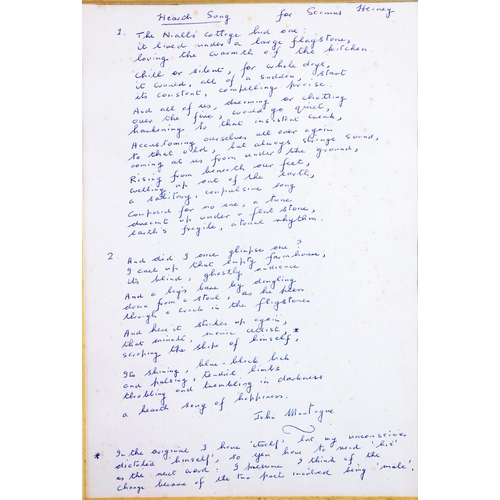 Hearth Song for Seamus Heaney
1. The Nialls' cottage had one:
it lived under a large flagstone,
loving the warmth of the kitchen.
Chill or silent, for whole days,
it would, all of a sudden, start
its constant, compelling praise.
And all of us, dreaming or chatting
over the fire, would go quiet,
harkening to that insistent creak,
Accustoming ourselves all over again
to that old, but always strange sound,
coming at us from under the ground,
Rising from beneath our feet,
welling up out of the earth,
a solitary, compulsive song
Composed for no one, a tune
dreamt up under a flat stone,
earth's fragile, atonal rhythm.
2. And did I once glimpse one?
I call up that empty farmhouse,
its blind, ghostly audience
And a boy's bare legs dangling
down from a stool, as he peers
through a crack in the flagstones
And here it strikes up again,
that minute, manic cellist,*
scraping the shape of himself,
Its shining, blue-black back
and pulsing, tendril limbs
throbbing and trembling in darkness
a hearth song of happiness.
John Montague
* In the original I have 'itself', but my unconscious
dictated 'himself', so you have to read 'his'
as the next word: I presume I think of the
change because of the two poets involved being 'male'.